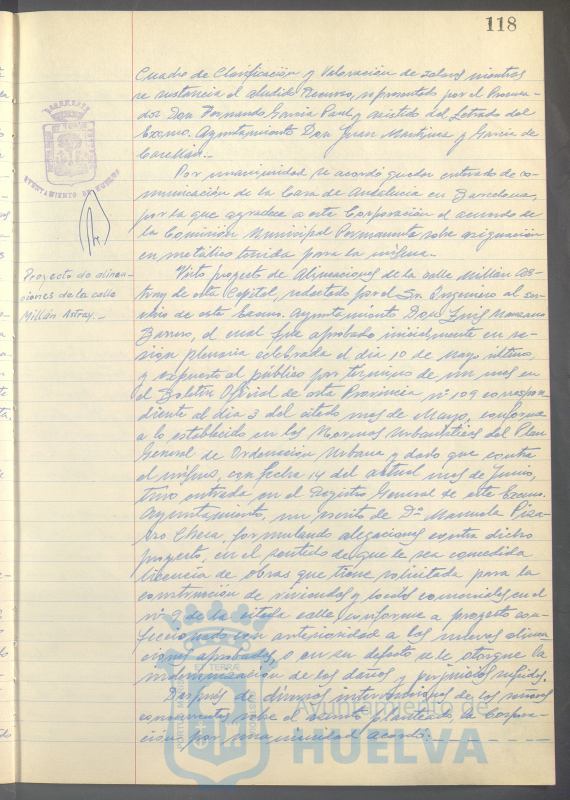 118
Cuadro de Clasificación y Valoración de solares mientras
se sustancia el aludido Recurso, representado por el Procura-
dor Don Fernando García Paul y asistido del Letrado del
Excmo. Ayuntamiento Don Juan Martínez y García de
Casellián.-
Por unanimidad se acordó quedar enterado de co-
municación de la Casa de Andalucía en Barcelona,
por la que agradece a esta Corporación el acuerdo de
la Comisión Municipal Permanente sobre asignación
en metálico tenida para la misma.-
Proyecto de alinea-
ciones de la calle
Millán Astray.-
Visto proyecto de Alineaciones de la calle Millán As-
tray de esta Capital, redactado por el Sr. Ingeniero al ser-
vicio de este Excmo. Ayuntamiento Don Luis Manzano
Barrero, el cual fue aprobado inicialmente en se-
sión plenaria celebrada el día 10 de Mayo último,
y expuesto al público por término de un mes en
el Boletín Oficial de esta Provincia nº 109 correspon-
diente al día 3 del citado mes de Mayo, conforme
a lo establecido en las Normas Urbanísticas del Plan
General de Ordenación Urbana y dado que contra
el mismo, con fecha 14 del actual mes de Junio,
tuvo entrada en el Registro General de este Excmo.
Ayuntamiento, un escrito de Dª Manuela Piza-
rro Checa, formulando alegaciones contra dicho
proyecto, en el sentido de que le sea concedida
licencia de obras que tiene solicitada para la
construcción de viviendas y locales comerciales en el
nº 9 de la citada calle, conforme a proyecto con-
feccionado con anterioridad a las nuevas alinea-
ciones aprobadas, o en su defecto se le otorgue la
indemnización de los daños y perjuicios sufridos.
Después de diversas intervenciones de los señores
concurrentes sobre el asunto planteado, la Corpora-
ción por unanimidad acordó:
AYUNTAMIENTO DE HUELVA
Ayuntamiento de
HUELVA